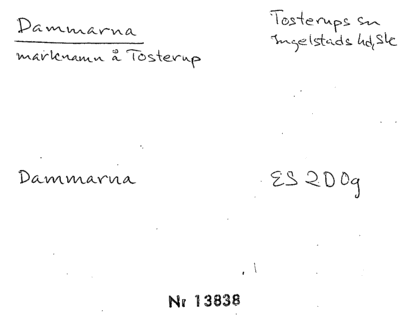 Dammarna
Tosterups sn
Ingelstads hd, Sk
marknamn å Tosterup
Dammarna
ES 2D0g
Nr 13838